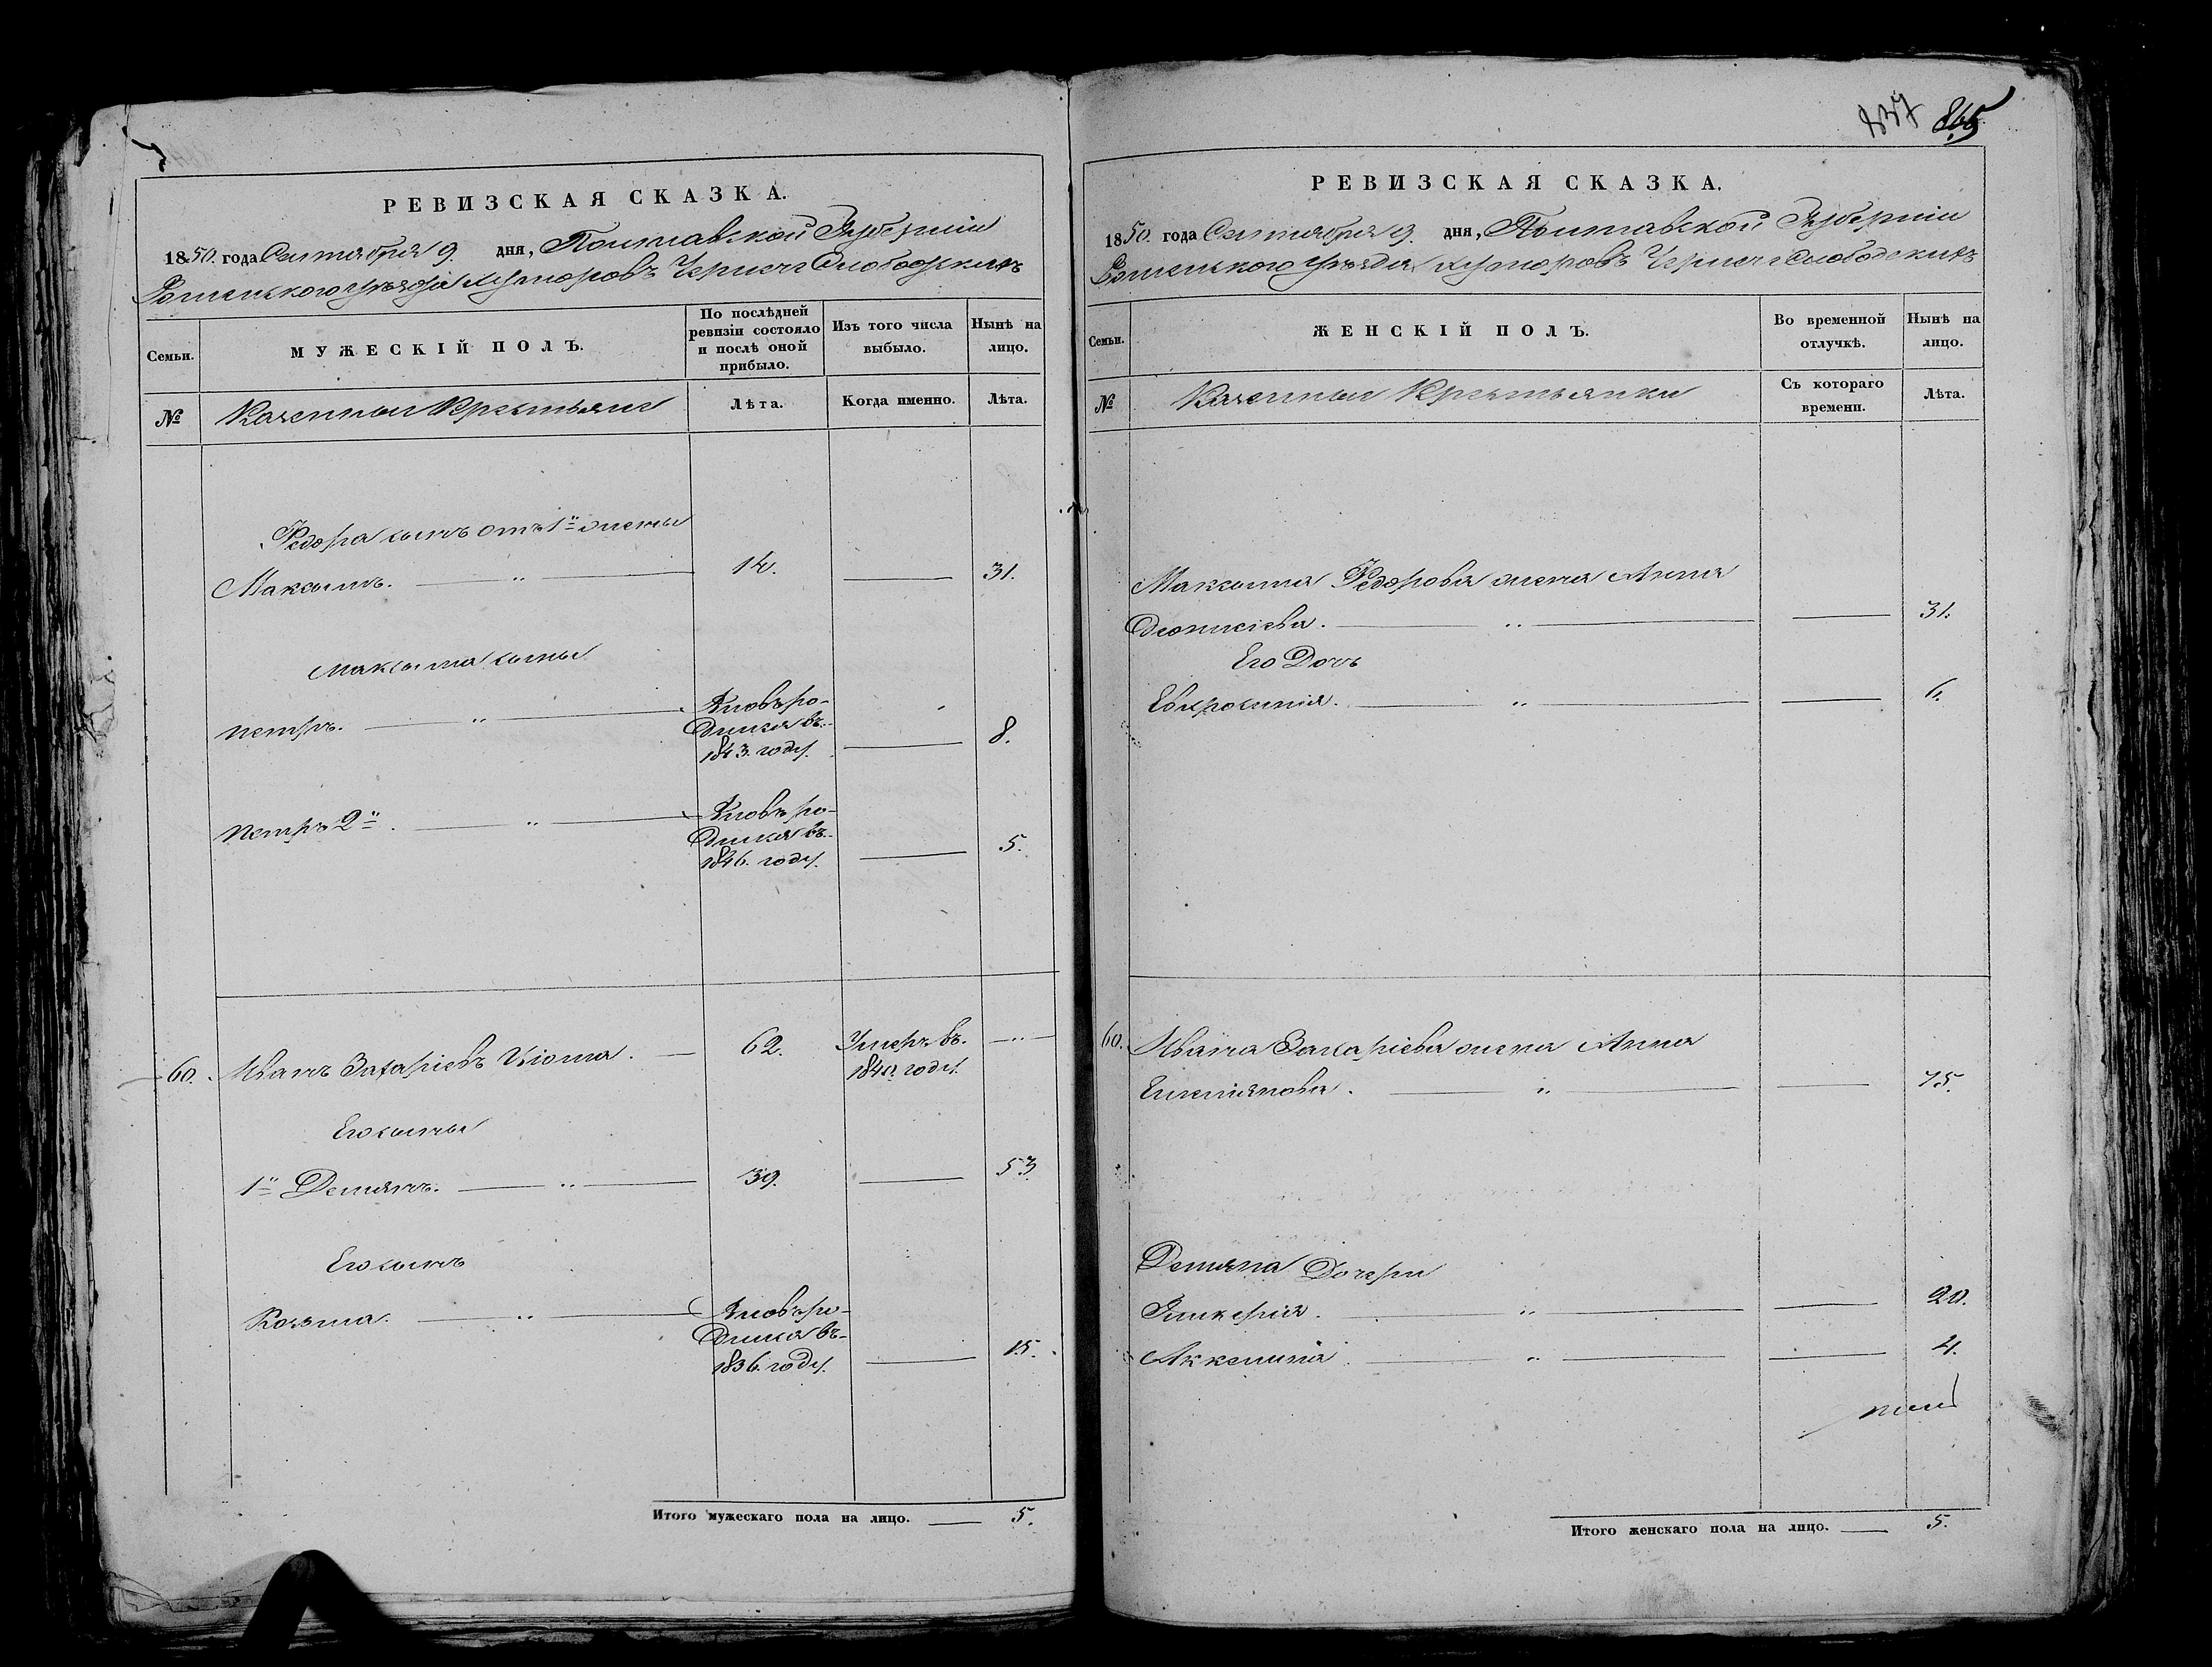 РЕВИЗСКАЯ СКАЗКА.
1850. года Сентября 9. дня, Полтавской Губерніи
Роменского уѣзда хуторовъ Чернечеслободскихъ
Семьи.
МУЖЕСКІЙ ПОЛЪ.
По послѣдней ревизіи состояло и послѣ оной прибыло.
Изъ того числа выбыло.
Нынѣ на лицо.
№
Казенныи Крестьяне
Лѣта.
Когда именно.
Лѣта.
Федора сынъ отъ 1й жены
Максимъ. — " — 14. — 31.
Максима сыны
Петръ. — " — Вновь ро-
дился въ
1843. году. — 8.
Петръ 2й. — " — Вновь ро-
дился въ
1846. году. — 5.
60. Иванъ Захаріевъ Кіома. — 62. Умеръ въ — " —
1840. году.
Его сыны
1й Демянъ. — " — 39. — 53.
Его сынъ
Козьма. — " — Вновь ро-
дился въ
1836. году. — 15.
Итого мужескаго пола на лицо. — 5.
865
РЕВИЗСКАЯ СКАЗКА.
1850. года Сентября 9. дня, Полтавской Губерніи
Роменского уѣзда хуторовъ Чернечеслободскихъ
Семьи.
ЖЕНСКІЙ ПОЛЪ.
Во временной отлучкѣ.
Нынѣ на лицо.
№
Казенныи Крестьянки
Съ котораго времени.
Лѣта.
Максима Федорова жена Анна
Деонисіева. — " — — 31.
Его Дочь
Евфросинія. — " — — 6.
60. Ивана Захаріева жена Анна
Емеліянова. — " — — 75.
Демяна Дочери
Гликерія. — " — — 20.
Аккелина. — " — — 4.
Итого женскаго пола на лицо. — 5.